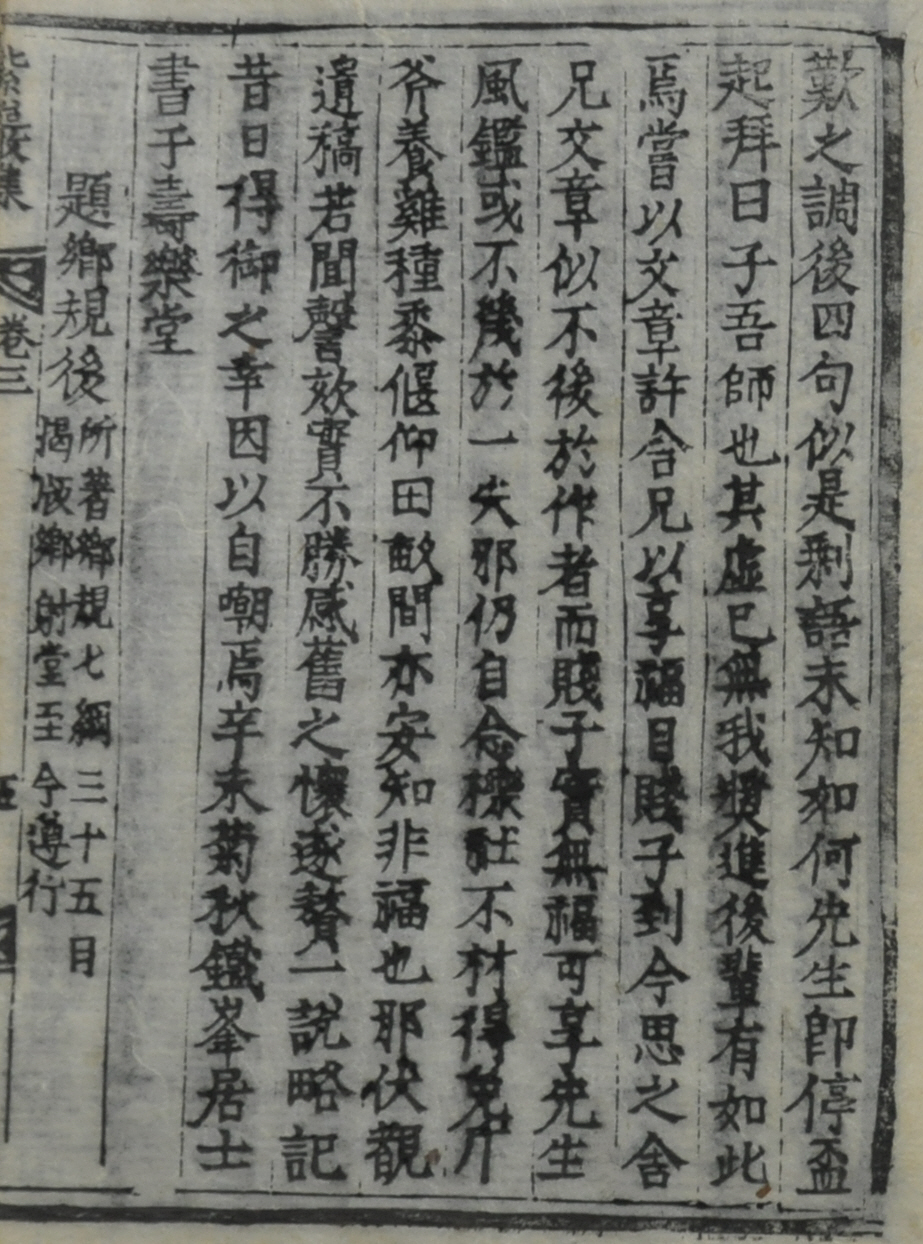 歎之調後四句似是剩語未知如何先生卽停盃
起拜曰子吾師也其虛已無我奬進後輩有如此
焉嘗以文章許舍兄以享福目賤子到今思之舍
兄文章似不後於作者而賤子實無福可享先生
風鑑或不幾於一失邪仍自念櫟社不材得免斤
斧養雞種黍偃仰田畝間亦安知非福也邪伏覩
遺稿若聞謦欬實不勝感舊之懷遂贅一說略記
昔日得御之幸因以自嘲焉辛未菊秋鑑峯居士
書于壽樂堂
題鄕規後
所著鄕規七綱三十五目
揭板鄕射堂至今遵行
卷三